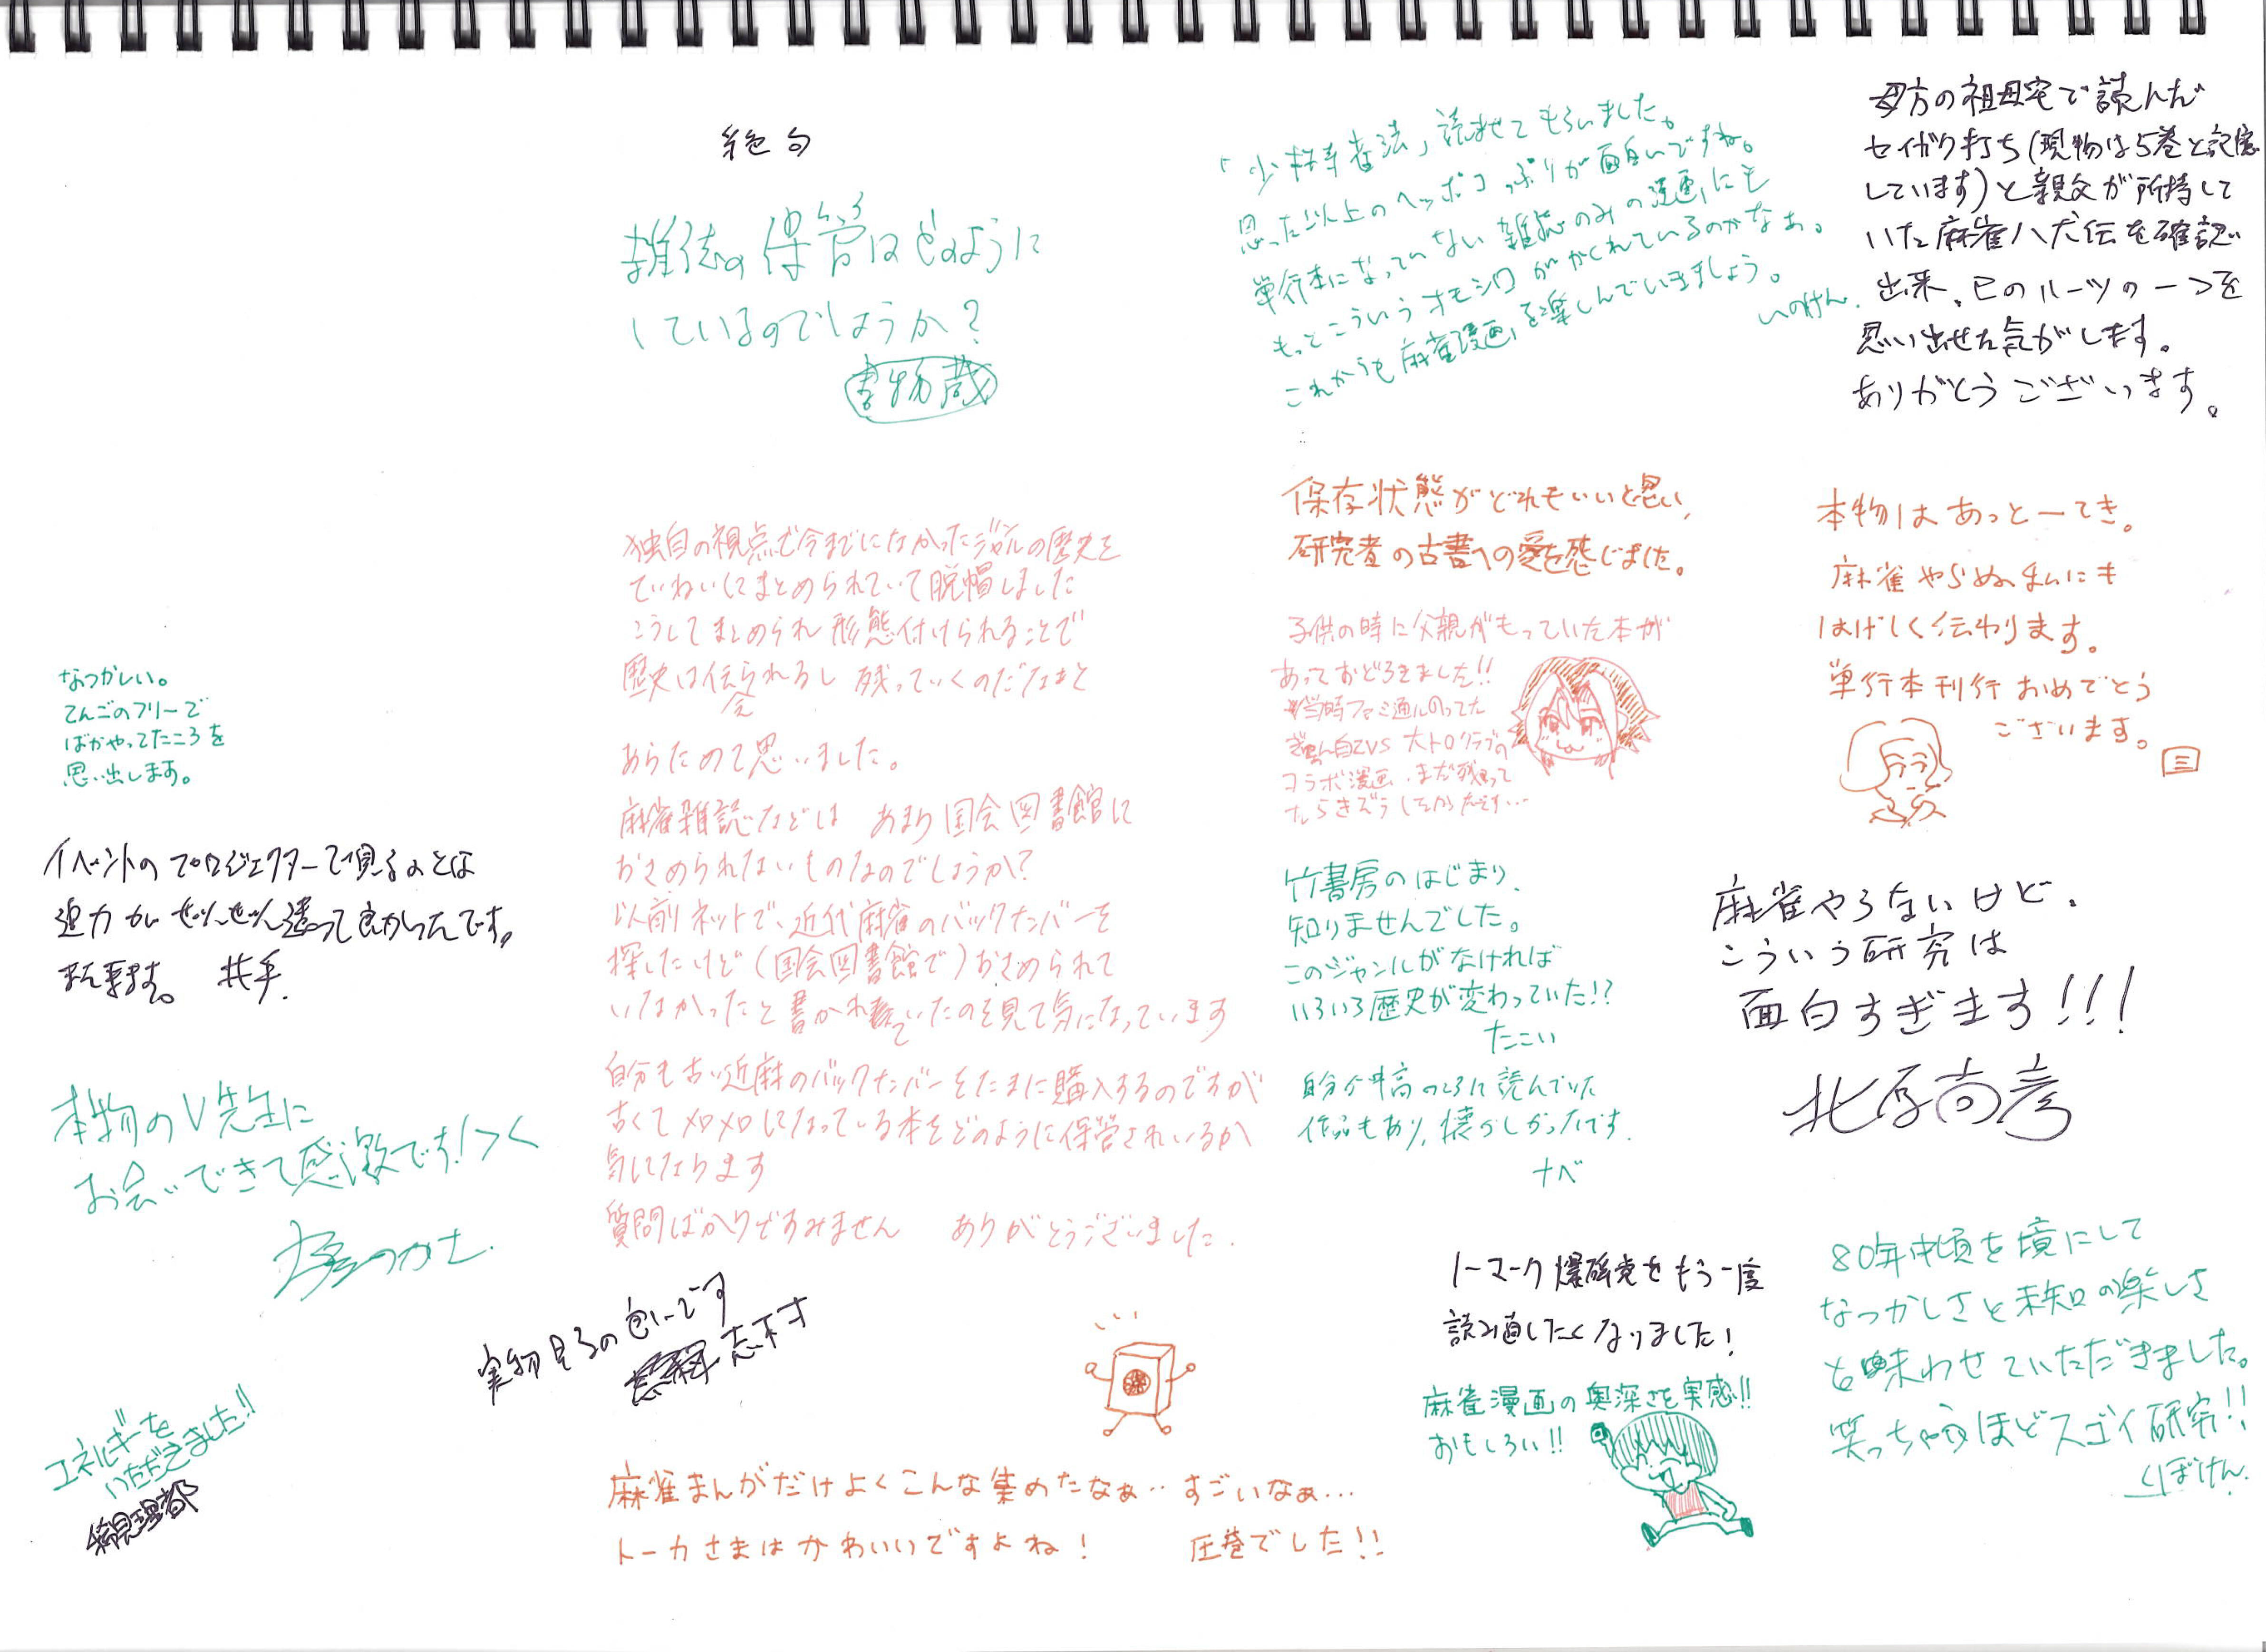 母方の祖母宅で読んだ
セイガク打ち(現物は5巻と記憶
しています)と親父が所持して
いた麻雀八犬伝を確認
出来、己のルーツの一つを
思い出せた気がします。
ありがとうございます。
「少林寺雀法」読ませてもらいました。
思った以上のヘッポコっぷりが面白いですね。
単行本になっていない雑誌のみの漫画にも
もっとこういうオモシロがかくれているのかなぁ。
これからも麻雀漫画を楽しんでいきましょう。
いのけん.
絶句
雑誌の保管はどのように
しているのでしょうか?
書物蔵
本物はあっとーてき。
麻雀やらぬまんにも
はげしく伝わります。
単行本刊行おめでとう
ございます。
保存状態がどれもいいと思い、
研究者の古書への愛を感じました。
子供の時に父親がもっていた本が
あっておどろきました!!
当時ファミ通にのってた
自Z VS 大トロクラブの
コラボ漫画、まだ残って
たらきぞうしたかったです…
竹書房のはじまり、
知りませんでした。
このジャンルがなければ
いろいろ歴史が変わっていた!?
たこい
自分が中高のころに読んでいた
作品もあり、懐かしかったです.
ナベ
麻雀やらないけど、
こういう研究は
面白すぎます!!!
北原尚彦
独自の視点で今までになかったジャンルの歴史を
ていねいにまとめられていて脱帽しました
こうしてまとめられ形態付けられることで
歴史は伝えられるし残っていくのだなぁと
あらためて思いました。
麻雀雑誌などは あまり国会図書館に
おさめられないものなのでしょうか?
以前ネットで、近代麻雀のバックナンバーを
探したけど(国会図書館で)おさめられて
いなかったと書かれていたのを見て気になっています
自分も古い近麻のバックナンバーをたまに購入するのですが
古くてメロメロになっている本をどのように保管されいるか
気になります
質問ばかりですみません ありがとうございました.
なつかしい。
てんごのフリーで
ばかやってたころを
思い出します。
イベントのプロジェクターで見るのとは
迫力がぜんぜん違って良かったです。
また来ます。
本物のV先生に
お会いできて感激です!>く
つかさ.
エネルギーを
いただきました!!
実物見るの色いです
志 才
麻雀まんがだけよくこんな集めたなぁ‥すごいなぁ…
トーカさまはかわいいですよね! 圧巻でした!!
トーマーク爆砕党をもう一度
読み直したくなりました!
麻雀漫画の奥深さを実感!!
おもしろい!!
80年中頃を境にして
なつかしさと未知の楽しさ
を味わせていただきました。
笑っちゃうほどスゴイ研究!!
くぼけん.